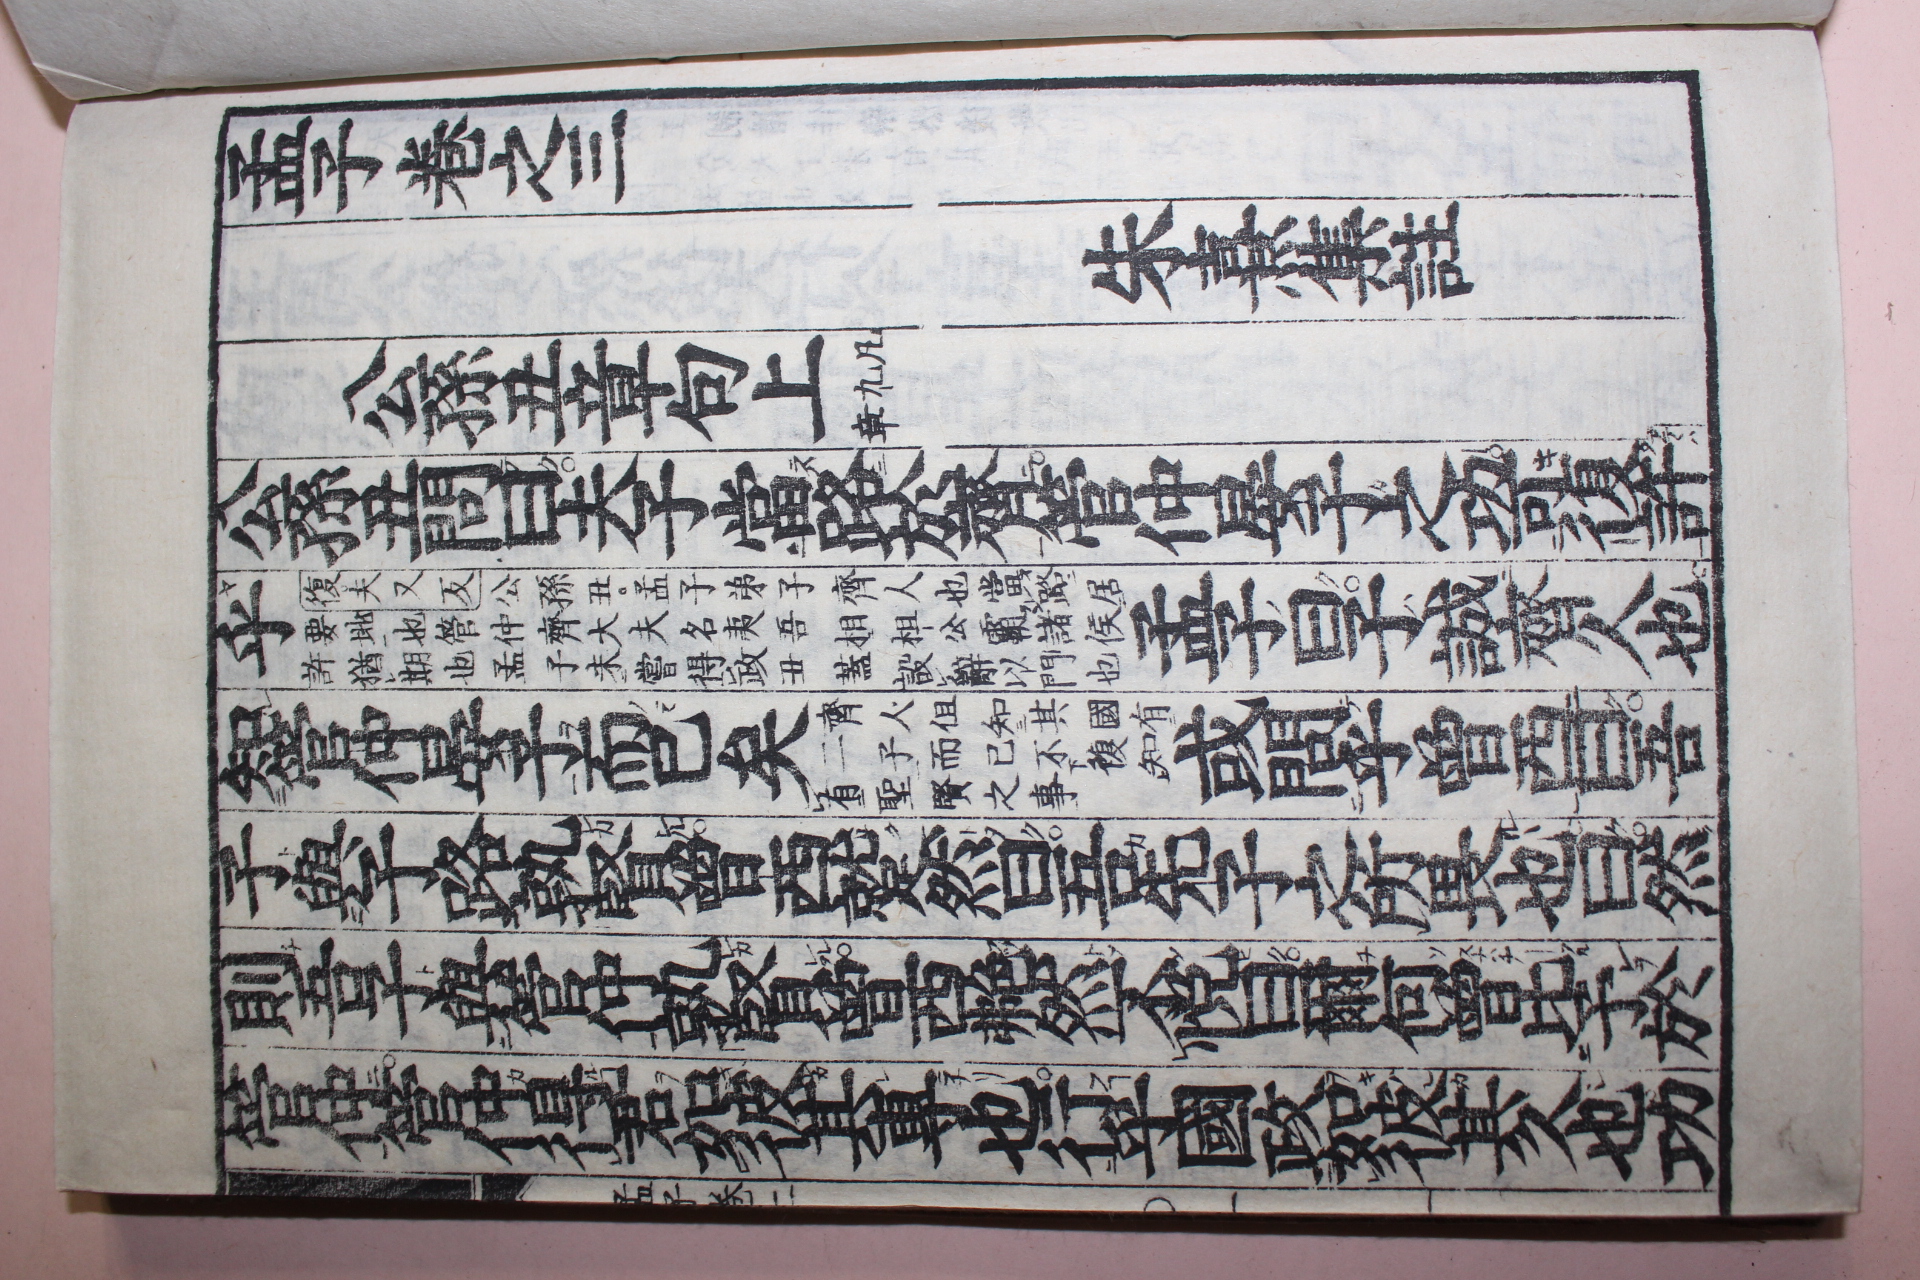 孟子卷之三
朱熹集註
公孫丑章句上
凡九章
公孫丑問曰夫子當路於齊管仲晏子之功可復許
乎
復夫又反公孫丑孟子弟子齊人也當路居
要地也管仲齊大夫名夷吾相桓公霸諸侯
許猶期也孟子未嘗得政丑蓋設辭以問也
孟子曰子誠齊人也
知管仲晏子而已矣
齊人但知其國有
二子而已不復知
有聖賢之事
或問乎曾西曰吾
子與子路孰賢曾西蹴然曰吾先子之所畏也曰然
則吾子與管仲孰賢曾西艴然不悅曰爾何曾比予於
管仲管仲得君如彼其專也行乎國政如彼其久也功
孟子卷三